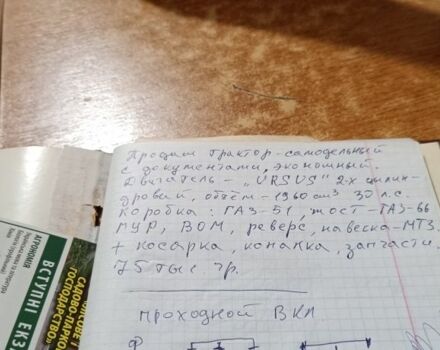 Продам трактор-самодельный
с документами, экономный.
Двигатель - "URSUS" 2-х цилин-
дровый, объём - 1960 см³ 30 л.с.
Коробка: ГАЗ-51, мост-ГАЗ-66
ГУР, ВОМ, реверс, навеска-МТЗ.
+ косарка, копалка, запчасти.
75 тыс гр.
проходной ВКЛ.
АГРОНОМІЯ
ВСТУПНІ ЕКЗ
САДОВО-ПАРКО
ГОСПОДАРСТВО